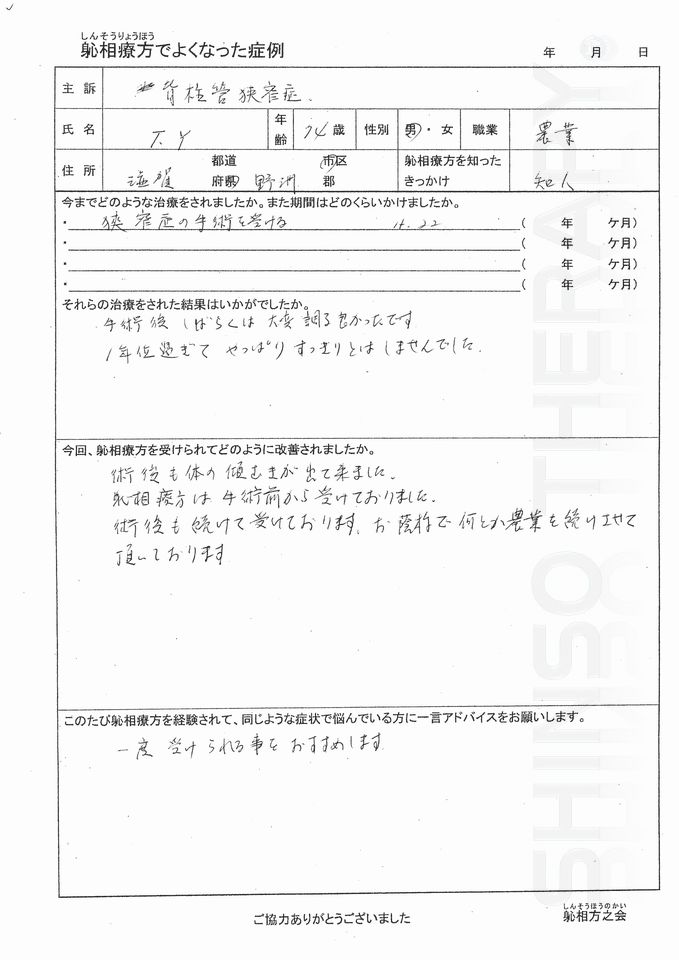 しんそうりょうほう
躰相療方でよくなった症例
年 月 日
主訴 脊柱管狭窄症.
氏名 T.Y 年齢 74歳 性別 男・女 職業 農業
住所 滋賀 都道府県 野洲 市区郡 躰相療方を知ったきっかけ 知人
今までどのような治療をされましたか。また期間はどのくらいかけましたか。
・ 狭窄症の手術を受ける H.22 ( 年 ケ月)
・ ( 年 ケ月)
・ ( 年 ケ月)
・ ( 年 ケ月)
それらの治療をされた結果はいかがでしたか。
手術後 しばらくは 大変調子良かったです
1年位過ぎて やっぱり すっきりとは しませんでした.
今回、躰相療方を受けられてどのように改善されましたか。
術後も体の傾むきが出て来ました.
躰相療方は 手術前から受けておりました.
術後も 続けて受けております. お蔭様で何とか農業を続けさせて
頂いております
このたび躰相療方を経験されて、同じような症状で悩んでいる方に一言アドバイスをお願いします。
一度 受けられる事を おすすめします
ご協力ありがとうございました
しんそうほうのかい
躰相方之会
SHINSO THERAPY